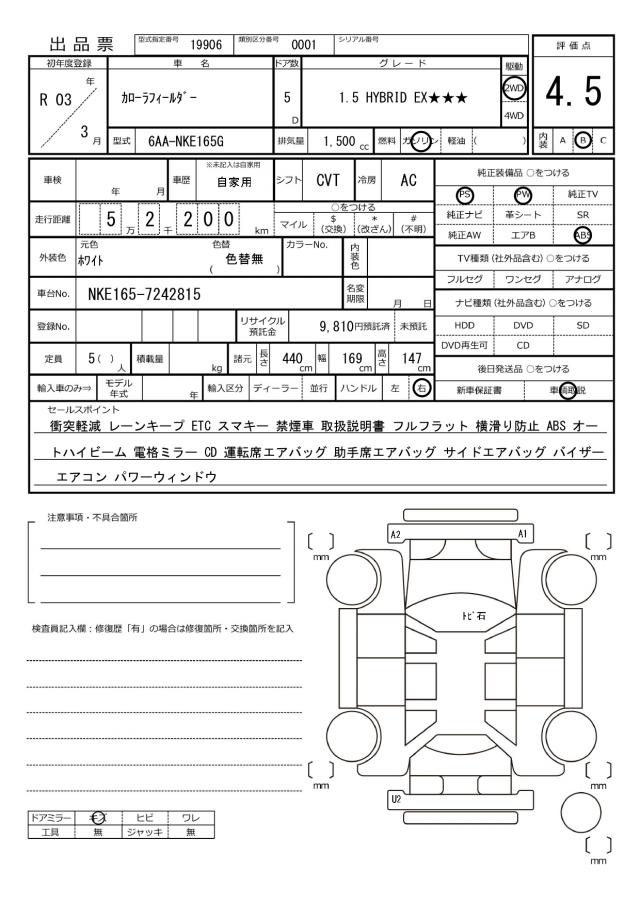 出品票 型式指定番号 19906 類別区分番号 0001 シリアル番号
評価点
4.5
内装 A B C
初年度登録 車名 ドア数 グレード 駆動
R 03 年 3 月
カローラフィールダー 5 D 1.5 HYBRID EX★★★ 2WD
4WD
型式 6AA-NKE165G 排気量 1,500 cc 燃料 ガソリン 軽油 ( )
車検 年 月 車歴 ※未記入は自家用 自家用 シフト CVT 冷房 AC
走行距離 5 万 2 千 200 km
○をつける
マイル $ (交換) * (改ざん) # (不明)
外装色 元色 ホワイト 色替 ( 色替無 ) カラーNo. 内装色
車台No. NKE165-7242815 名変期限 月 日
登録No. リサイクル預託金 9,810円預託済 未預託
定員 5( ) 人 積載量 kg 諸元 長さ 440 cm 幅 169 cm 高さ 147 cm
輸入車のみ⇒ モデル年式 年 輸入区分 ディーラー 並行 ハンドル 左 右
純正装備品 ○をつける
PS PW 純正TV
純正ナビ 革シート SR
純正AW エアB ABS
TV種類(社外品含む)○をつける
フルセグ ワンセグ アナログ
ナビ種類(社外品含む)○をつける
HDD DVD SD
DVD再生可 CD
後日発送品 ○をつける
新車保証書 車輌取説
セールスポイント
衝突軽減 レーンキープ ETC スマキー 禁煙車 取扱説明書 フルフラット 横滑り防止 ABS オー
トハイビーム 電格ミラー CD 運転席エアバッグ 助手席エアバッグ サイドエアバッグ バイザー
エアコン パワーウィンドウ
注意事項・不具合箇所
検査員記入欄:修復歴「有」の場合は修復箇所・交換箇所を記入
ドアミラー キズ ヒビ ワレ
工具 無 ジャッキ 無
A2 A1
[ ] mm
[ ] mm
トビ石
[ ] mm
[ ] mm
U2
[ ] mm